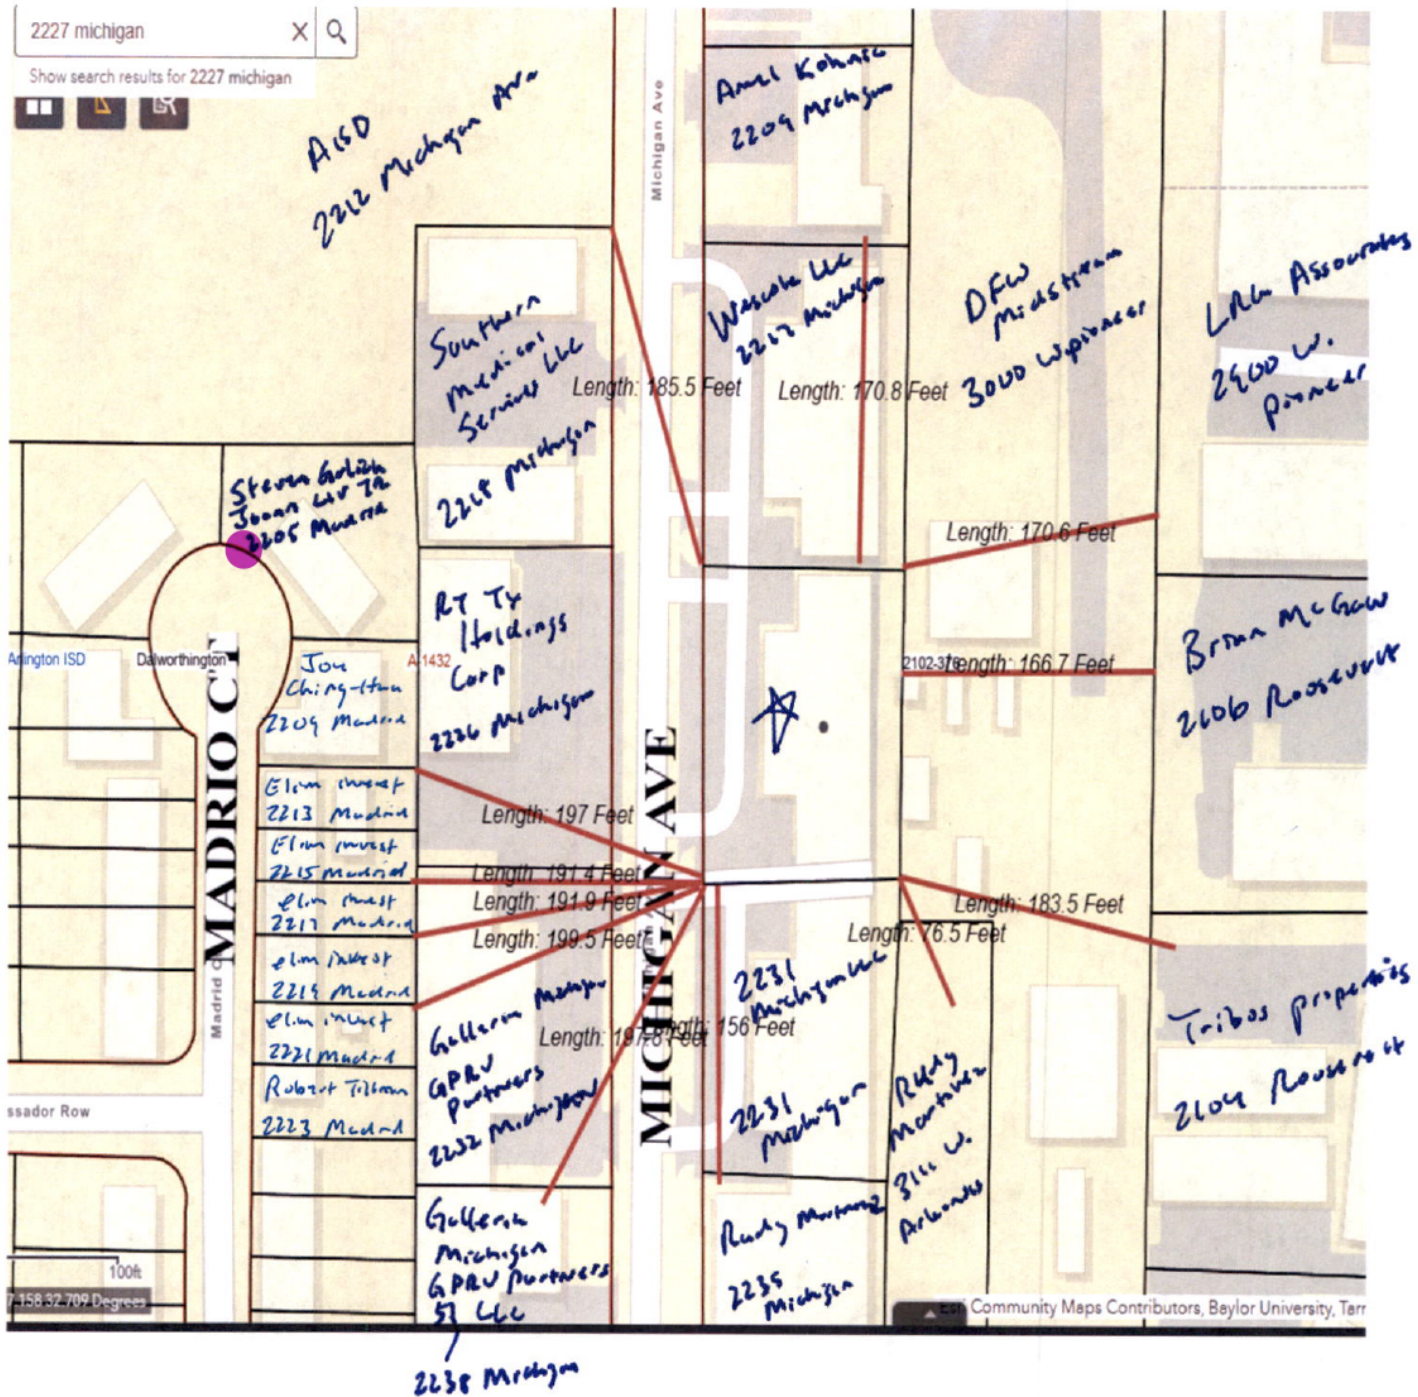 2227 michigan
Show search results for 2227 michigan
AISD
2212 Michigan Ave
Michigan Ave
2209 Michigan
Southern
Medical
Services LLC
2218 Michigan
LLC
2217 Michigan
DFW
Midstream
3000 W. pioneer
Associates
2900 W.
pioneer
Length: 185.5 Feet
Length: 170.8 Feet
Steven
2205 Madrid
Length: 170.6 Feet
RT TX
Holdings
Corp
2226 Michigan
Brian McGaw
2106 Roosevelt
Arlington ISD
Dalworthington
A-1432
Length: 166.7 Feet
Jou
2209 Madrid
MADRID CT
MICHIGAN AVE
Elim invest
2213 Madrid
Elim invest
2215 Madrid
elim invest
2217 Madrid
elim invest
2219 Madrid
elim invest
2221 Madrid
Robert
2223 Madrid
Length: 197 Feet
Length: 191.4 Feet
Length: 191.9 Feet
Length: 199.5 Feet
Length: 183.5 Feet
Length: 76.5 Feet
Length: 197.8 Feet
Length: 156 Feet
Galleria Michigan
GPRV
Partners
2232 Michigan
2231
Michigan LLC
2231
Michigan
Rudy
Martinez
3111 W.
Arkansas
Tribos properties
2104 Roosevelt
Galleria
Michigan
GPRV Partners
LLC
2238 Michigan
Rudy Martinez
2235
Michigan
ssador Row
100ft
7.158 32.709 Degrees
Esri Community Maps Contributors, Baylor University, Tarr